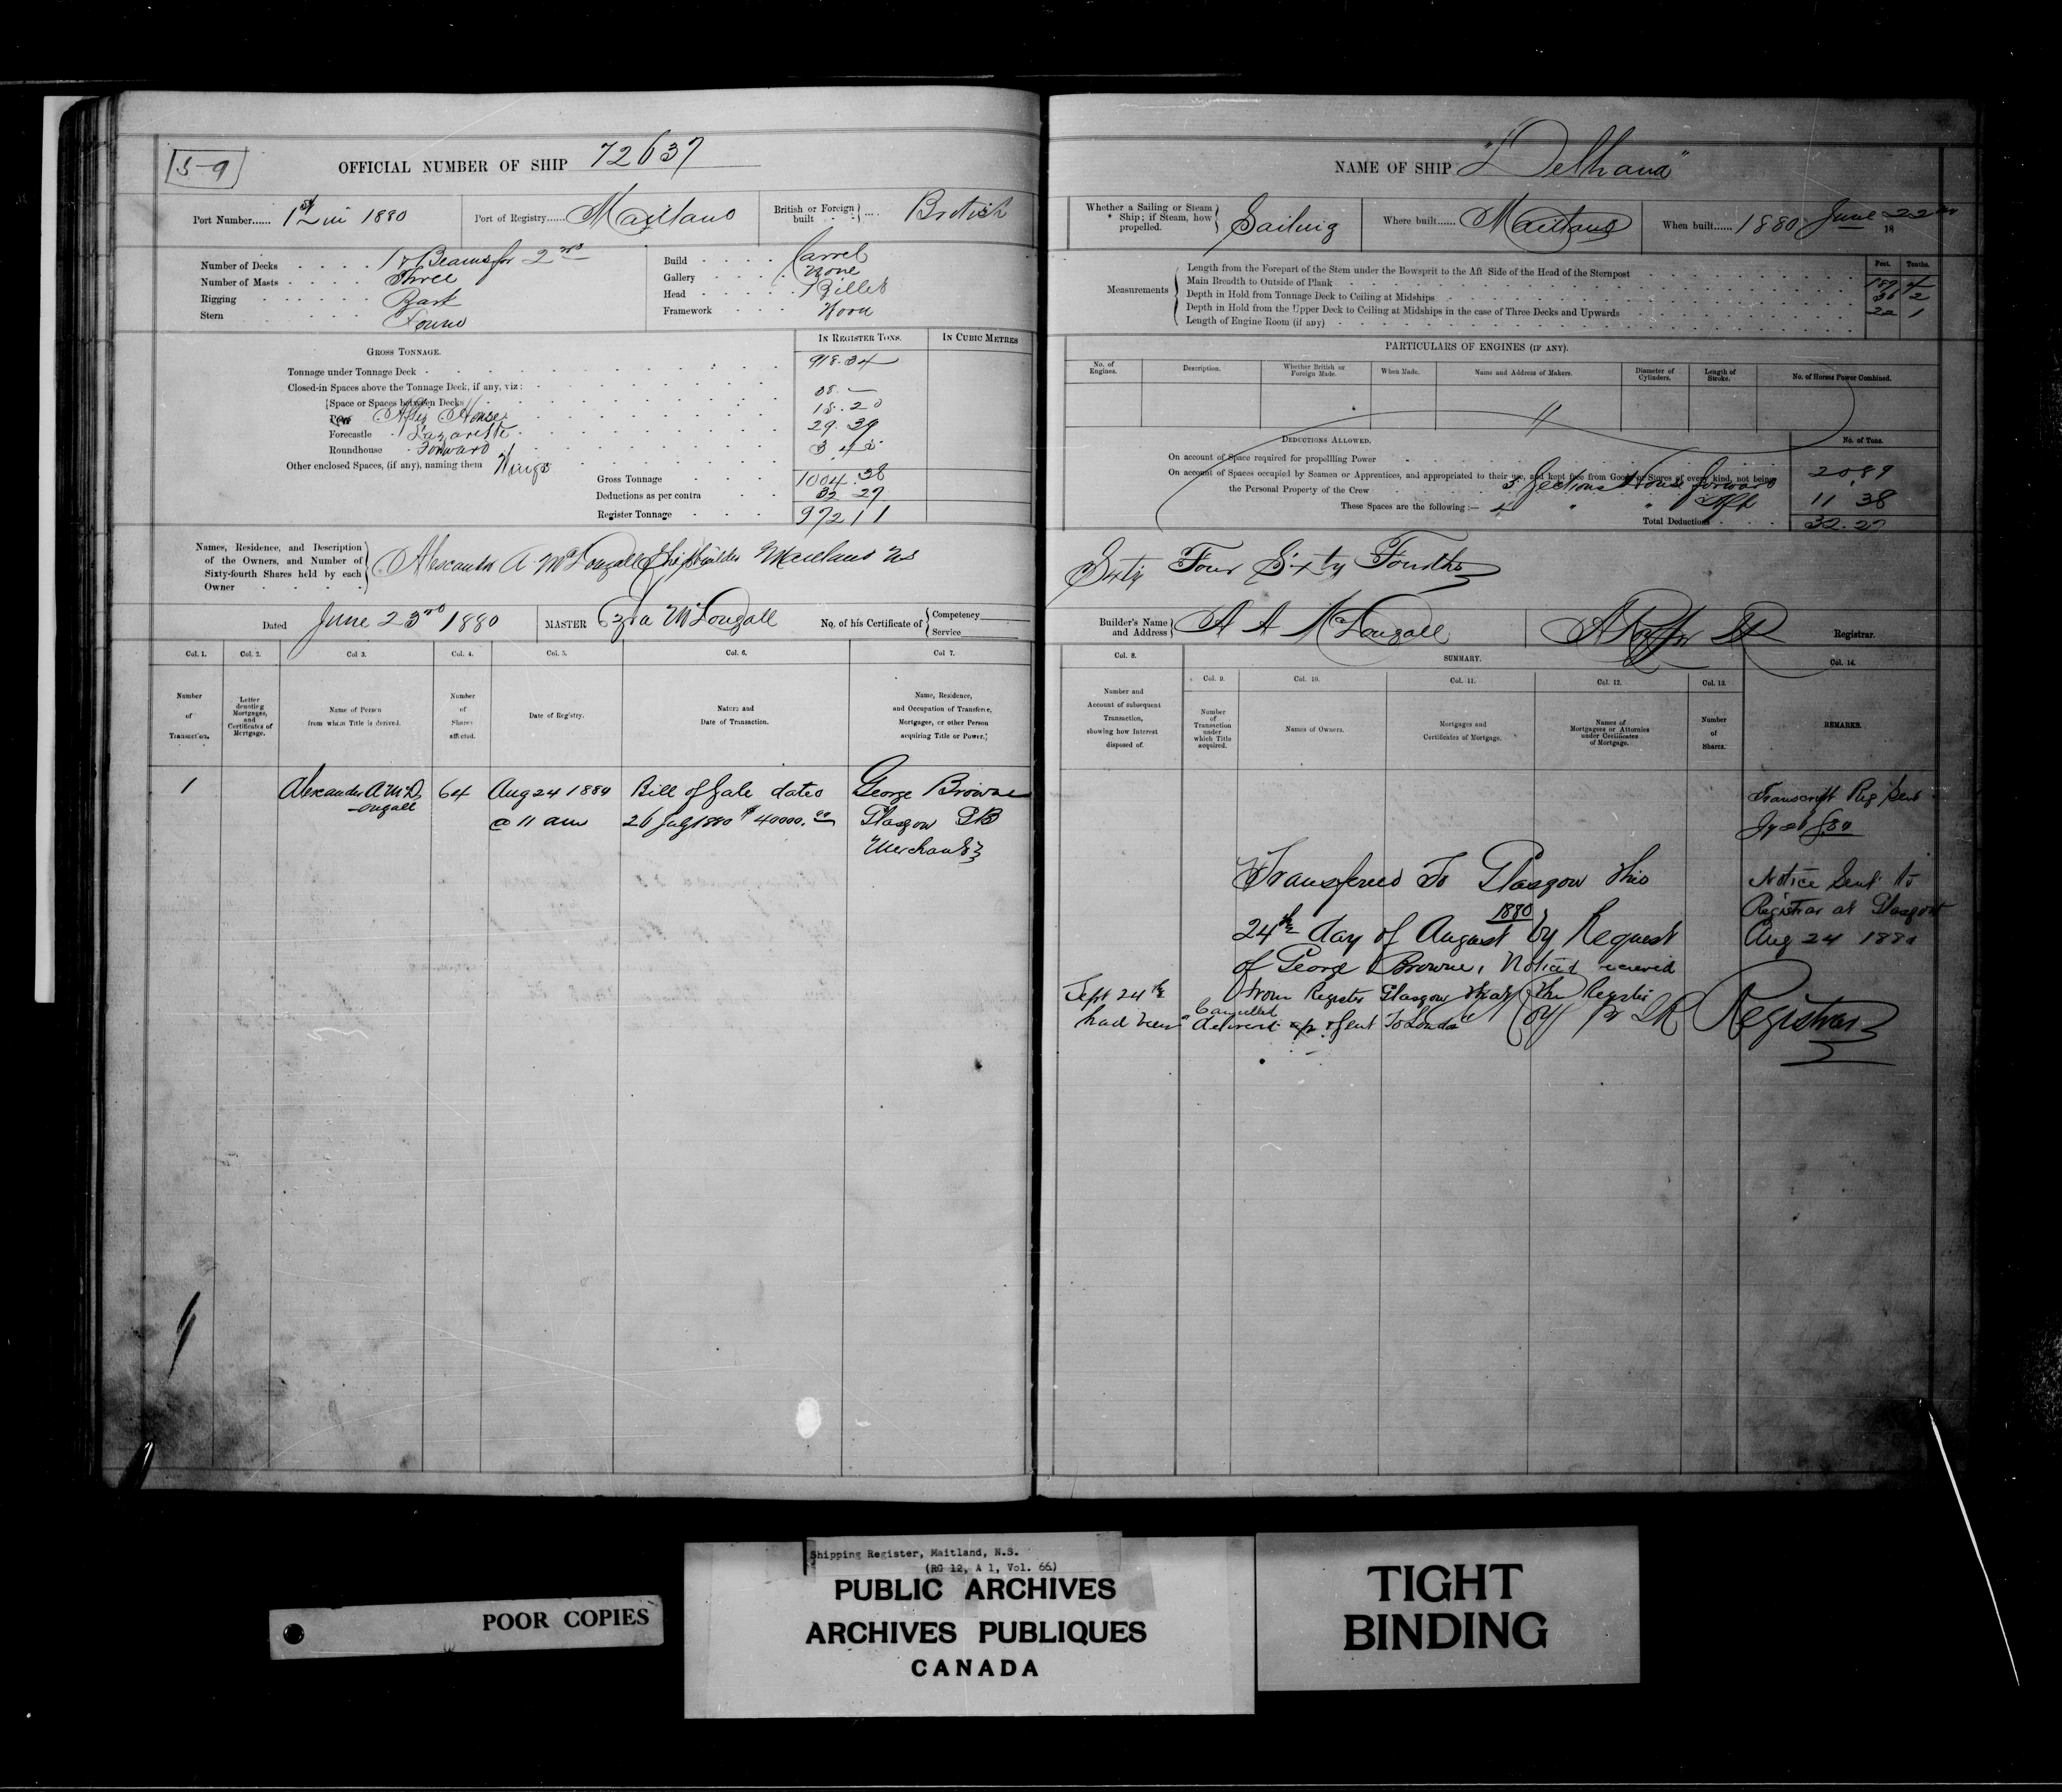 59
OFFICIAL NUMBER OF SHIP 72637
Port Number...... 1st in 1880
Port of Registry...... Maitland
British or Foreign built .... British
Number of Decks . . . . 1 & Beams for 2nd
Number of Masts . . . . Three
Rigging . . . . . . Bark
Stern . . . . . . Round
Build . . . . . Carvel
Gallery . . . . None
Head . . . . . Billet
Framework . . . . Wood
GROSS TONNAGE.
IN REGISTER TONS.
IN CUBIC METRES
Tonnage under Tonnage Deck 918.34
Closed-in Spaces above the Tonnage Deck, if any, viz:
Space or Spaces between Decks
Poop After House
Forecastle Lazarette
Roundhouse Forward
Other enclosed Spaces, (if any), naming them Wings
18.20
29.39
Gross Tonnage 1004.38
Deductions as per contra 32 27
Register Tonnage 972 11
Names, Residence, and Description of the Owners, and Number of Sixty-fourth Shares held by each Owner
Alexander A McDougall Shipbuilder Maitland NS
Dated June 23rd 1880
MASTER Ezra McDougall
No. of his Certificate of { Competency
Service
Col. 1. Col. 2. Col 3. Col. 4. Col. 5. Col. 6. Col 7.
Number of Transaction.
Letter denoting Mortgages, and Certificates of Mortgage.
Name of Person from whom Title is derived.
Number of Shares affected.
Date of Registry.
Nature and Date of Transaction.
Name, Residence, and Occupation of Transferee, Mortgagee, or other Person acquiring Title or Power.
1 Alexander A McD 64 Aug 24 1880 Bill of Sale dated George Browne
ougall @ 11 am 26 July 1880 $40000.00 Glasgow GB
Merchant
NAME OF SHIP
Whether a Sailing or Steam Ship; if Steam, how propelled. Sailing
Where built...... Maitland
When built...... 1880 June 22nd
18
Measurements
Feet. Tenths.
Length from the Forepart of the Stem under the Bowsprit to the Aft Side of the Head of the Sternpost 189 4
Main Breadth to Outside of Plank 36 2
Depth in Hold from Tonnage Deck to Ceiling at Midships 22 1
Depth in Hold from the Upper Deck to Ceiling at Midships in the case of Three Decks and Upwards
Length of Engine Room (if any)
PARTICULARS OF ENGINES (IF ANY).
No. of Engines.
Description.
Whether British or Foreign Made.
When Made.
Name and Address of Makers.
Diameter of Cylinders.
Length of Stroke.
No. of Horses Power Combined.
DEDUCTIONS ALLOWED.
No. of Tons.
On account of Space required for propelling Power
On account of Spaces occupied by Seamen or Apprentices, and appropriated to their use, and kept free from Goods or Stores of every kind, not being
the Personal Property of the Crew
3 Sections House forward 20.89
These Spaces are the following :— " " Aft 11 38
Total Deductions 32.27
Sixty Four Sixty Fourths
Builder's Name and Address A A McDougall
Registrar.
Col. 8.
SUMMARY.
Col. 14.
Col. 9. Col. 10. Col. 11. Col. 12. Col. 13.
Number and Account of subsequent Transaction, showing how Interest disposed of.
Number of Transaction under which Title acquired.
Names of Owners.
Mortgages and Certificates of Mortgage.
Names of Mortgagees or Attornies under Certificates of Mortgage.
Number of Shares.
REMARKS.
Transcript Reg Sent
Transferred To Glasgow this
24th day of August 1880 by Request
of George Browne, Notice received
Sept 24th from Register Glasgow that the Register
had been Cancelled delivered up & Sent To London
Registrar
Notice Sent to
Registrar at Glasgow
Aug 24 1880
POOR COPIES
Shipping Register, Maitland, N.S.
(RG 12, A 1, Vol. 66)
PUBLIC ARCHIVES
ARCHIVES PUBLIQUES
CANADA
TIGHT
BINDING